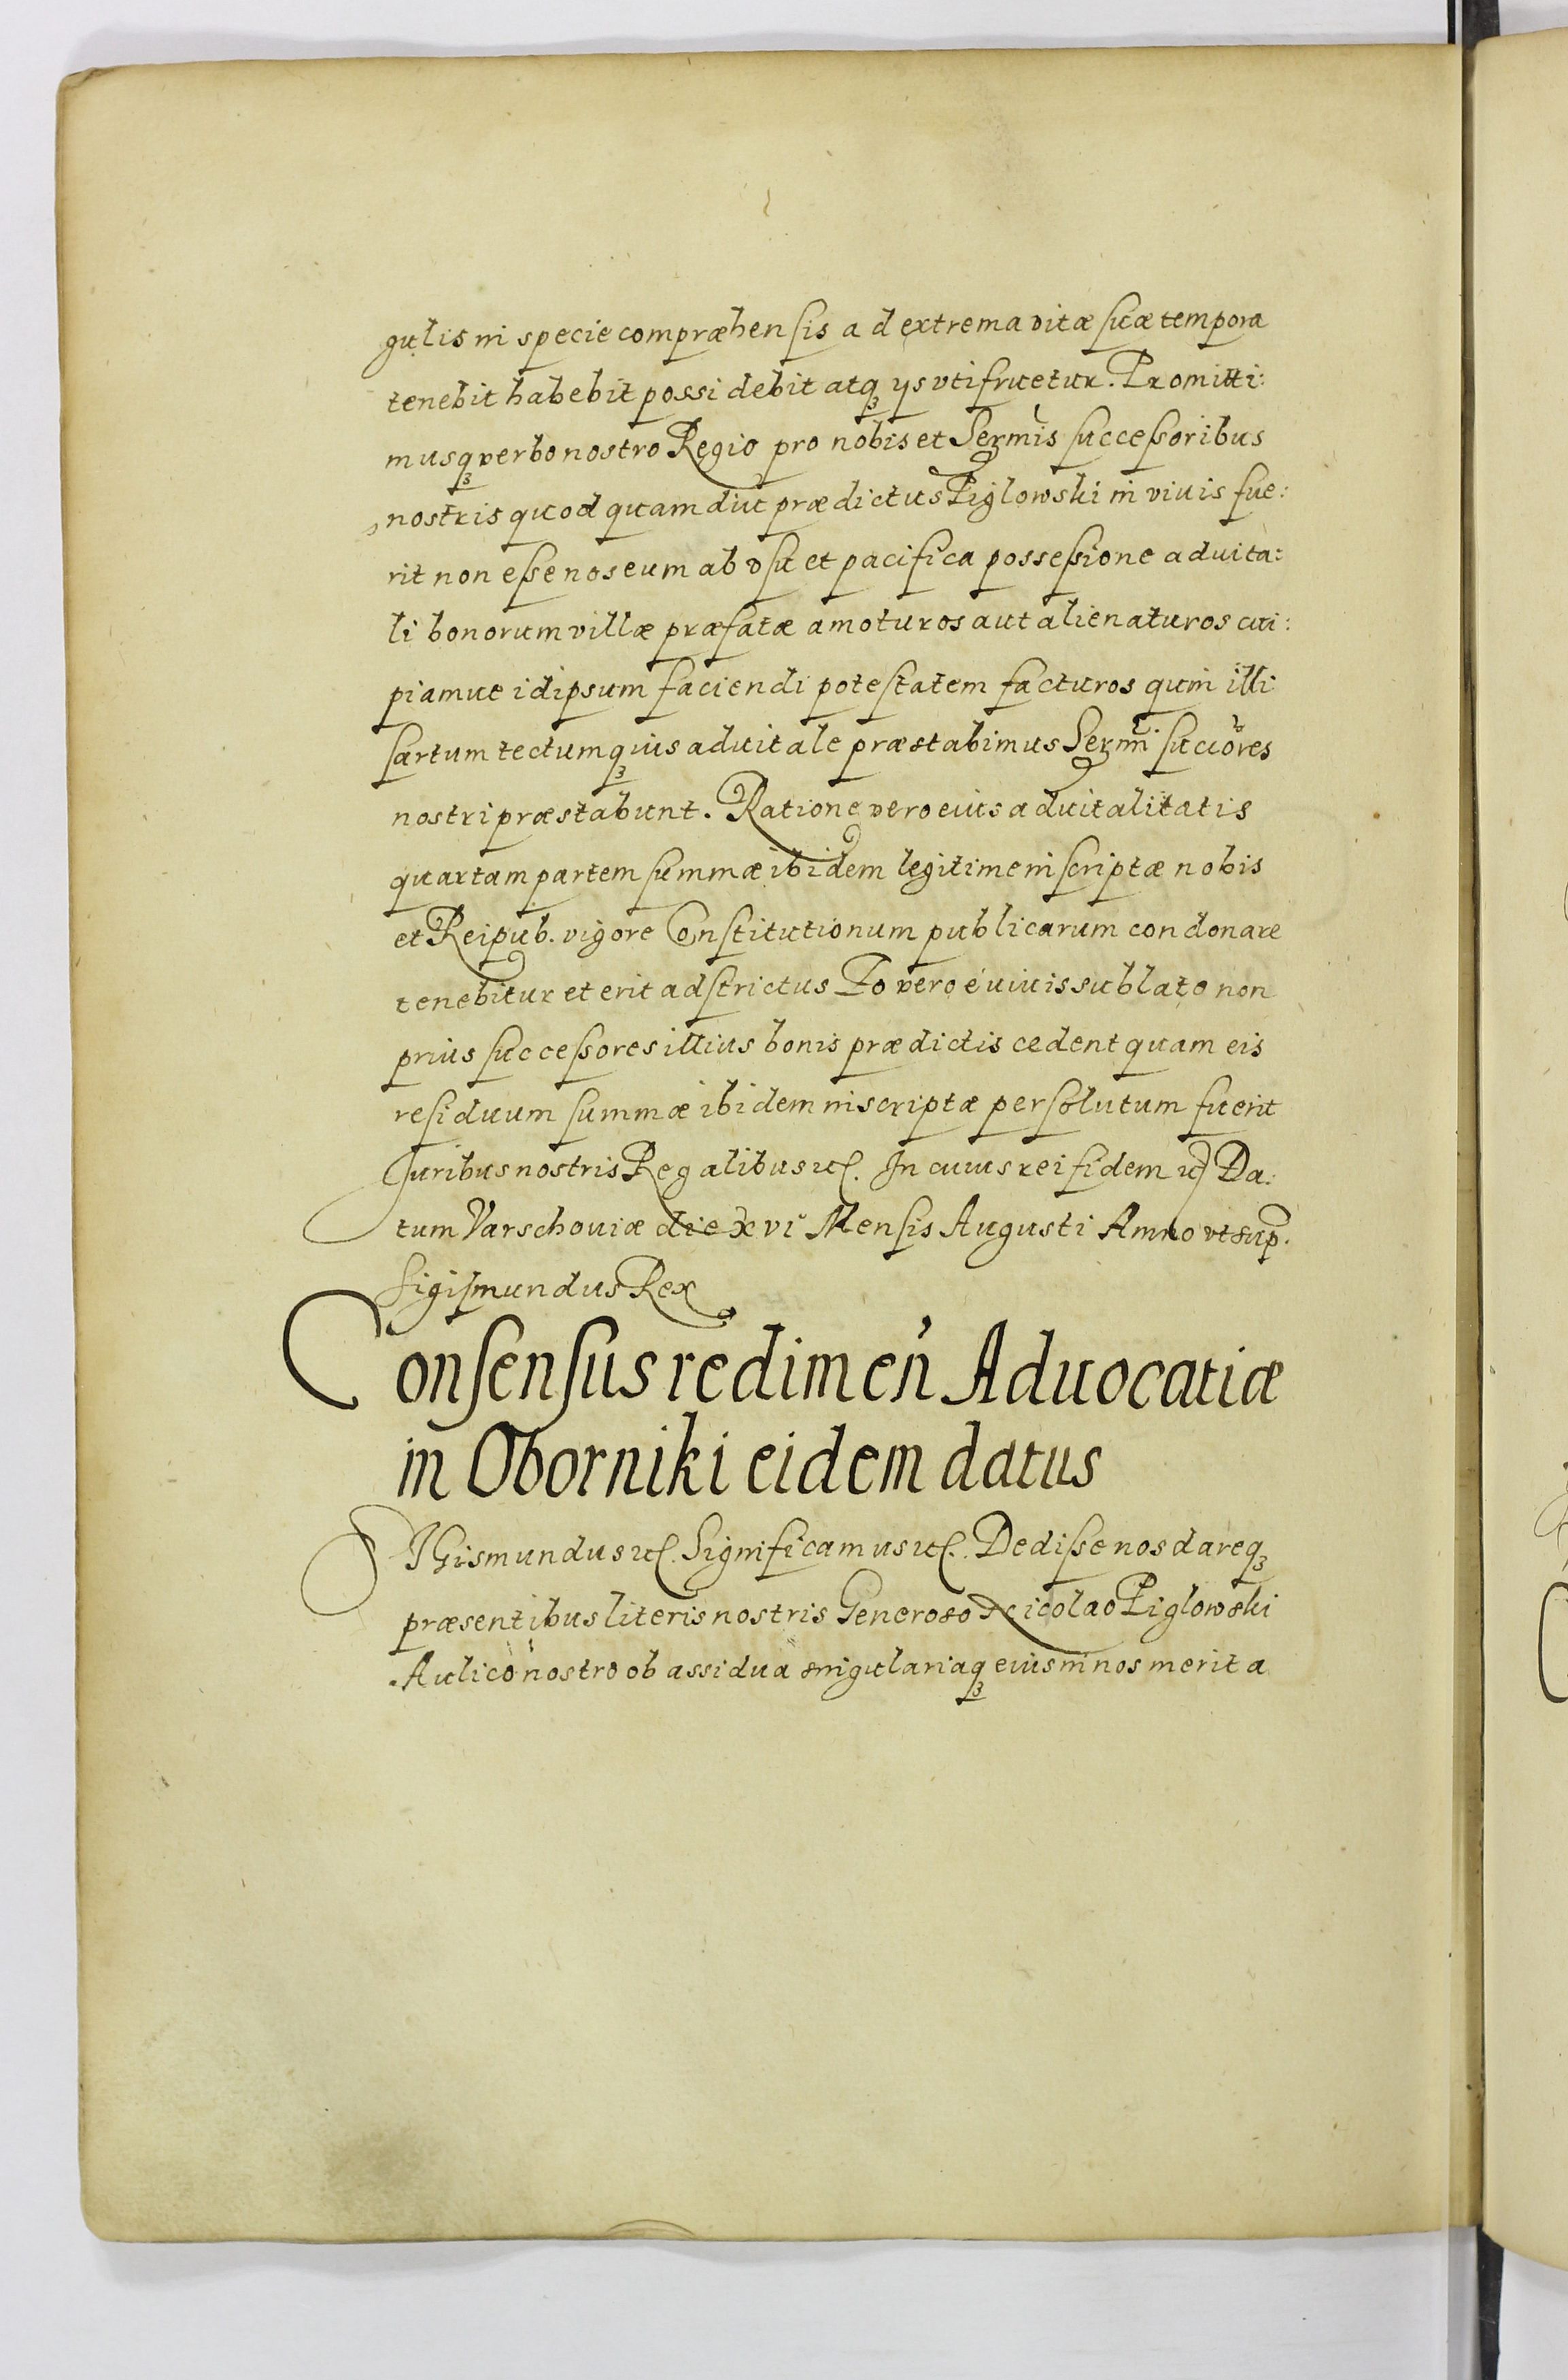 gulis in specie compræhensis ad extrema vitæ suæ tempora
tenebit habebit possidebit atq₃ ijs vtifruetur. Promitti:
musq₃ verbo nostro Regio pro nobis et Sermis successoribus
nostris quod quamdiu prædictus Piglowski in viuis fue:
rit non esse nos eum ab vsu et pacifica possessione aduita:
li bonorum villæ præfatæ amoturos aut alienaturos cui:
piamue idipsum faciendi potestatem facturos quin illi
sartum tectumq₃ ius aduitale præstabimus Sermi succores
nostri præstabunt. Ratione vero eius aduitalitatis
quartam partem summæ ibidem legitime inscriptæ nobis
et Reipub. vigore Constitutionum publicarum condonare
tenebitur et erit adstrictus Eo vero è uiuis sublato non
prius successores illius bonis prædictis cedent quam eis
residuum summæ ibidem inscriptæ persolutum fuerit
Juribus nostris Regalibus etc. In cuius rei fidem etc Da:
tum Varschouiæ die xvi Mensis Augusti Anno vt sup.
Sigismundus Rex
Consensus redimen̄ Aduocatiæ
in Oborniki eidem datus
SIGismundus etc. Significamus etc. Dedisse nos dareq₃
præsentibus literis nostris Generoso Nicolao Piglowski
Aulico nostro ob assidua singulariaq₃ eius in nos merita